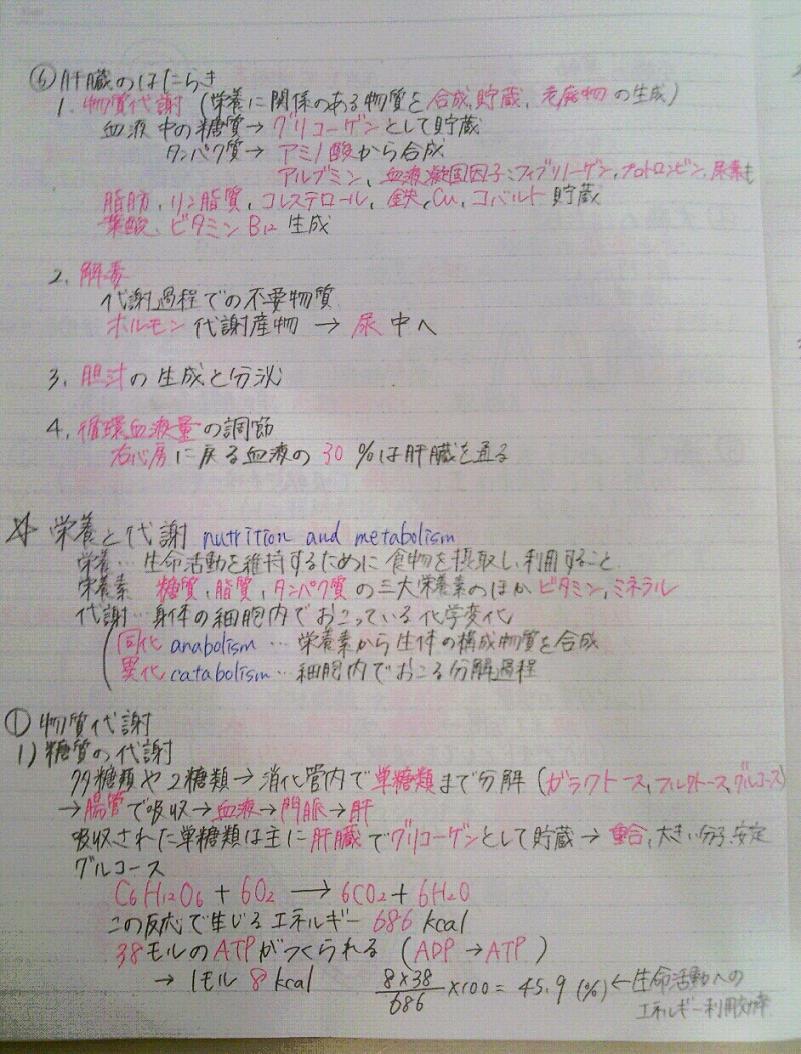 ⑥肝臓のはたらき
1. 物質代謝 (栄養に関係のある物質を合成、貯蔵、老廃物の生成)
血液中の糖質→グリコーゲンとして貯蔵
タンパク質→アミノ酸から合成
アルブミン、血液凝固因子:フィブリノーゲン、プロトロンビン、尿素も
脂肪、リン脂質、コレステロール、鉄、Cu、コバルト貯蔵
葉酸、ビタミンB12 生成
2. 解毒
代謝過程での不要物質
ホルモン代謝産物 → 尿中へ
3. 胆汁の生成と分泌
4. 循環血液量の調節
右心房に戻る血液の30%は肝臓を通る
☆ 栄養と代謝 nutrition and metabolism
栄養…生命活動を維持するために食物を摂取し、利用すること
栄養素 糖質、脂質、タンパク質の三大栄養素のほかビタミン、ミネラル
代謝…身体の細胞内でおこっている化学変化
同化 anabolism … 栄養素から生体の構成物質を合成
異化 catabolism … 細胞内でおこる分解過程
① 物質代謝
1) 糖質の代謝
多糖類や2糖類→消化管内で単糖類まで分解 (ガラクトース、フルクトース、グルコース)
→腸管で吸収→血液→門脈→肝
吸収された単糖類は主に肝臓でグリコーゲンとして貯蔵→重合、大きい分子、安定
グルコース
C6H12O6 + 6O2 → 6CO2 + 6H2O
この反応で生じるエネルギー 686 kcal
38モルのATPがつくられる (ADP→ATP)
→ 1モル 8 kcal 8×38/686 ×100 = 45.9 (%) ←生命活動への
エネルギー利用効率